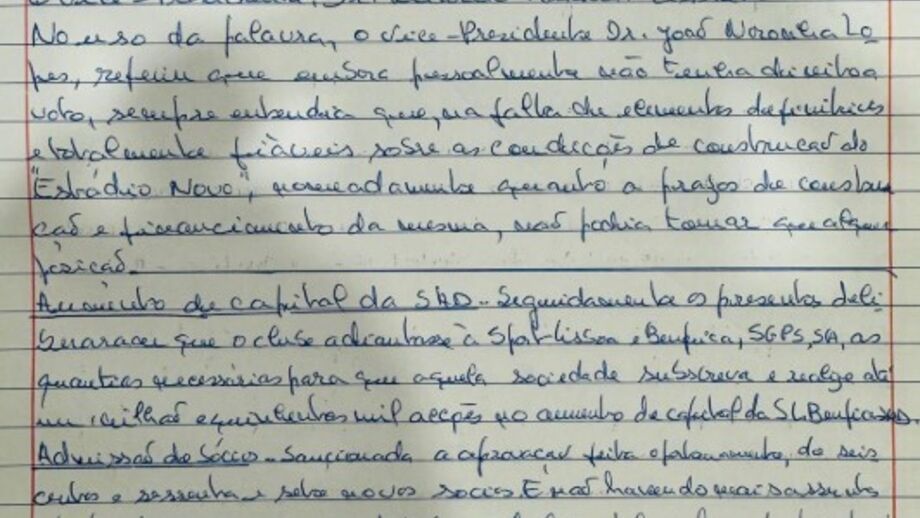 No uso da palavra, o Vice-Presidente Dr. João Noronha Lo
pes, referiu que embora pessoalmente não tenha direito a
voto, sempre entendia que, na falta de elementos definitivos
e totalmente fiáveis sobre as condicções de construcão do
"Estádio Novo", nomeadamente quanto a prazos de constru
cão e financiamento da mesma, não podia tomar qualquer
posicão.
Aumento de capital da SAD - Seguidamente os presentes deli
beraram que o clube adiantasse à Sport Lisboa e Benfica, SGPS, SA, as
quantias necessárias para que aquela sociedade subscreva e realize até
um milhão e quinhentas mil accões no aumento de capital da SL Benfica SAD.
Admissão de Sócios - Sancionada a aprovacão feita oportunamente, de seis
centos e sessenta e sete novos socios. E não havendo mais assuntos